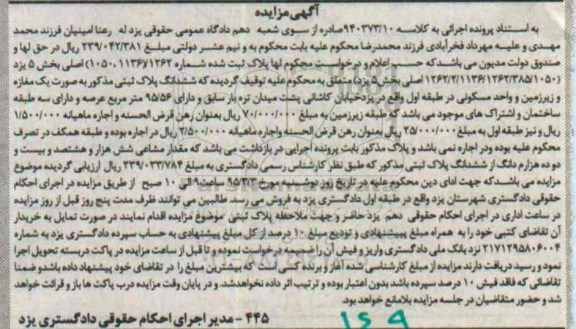 آگهی مزایده
به استناد پرونده اجرائی به کلاسه ۹۴۰۳۷۳/۱۰ صادره از سوی شعبه دهم دادگاه عمومی حقوقی یزد له رعنا امینیان فرزند محمد
مهدی و علیه مهرداد فخرآبادی فرزند محمدرضا محکوم علیه بابت محکوم به و نیم عشر دولتی مبلغ ۲۳۹/۰۴۲/۳۸۱ ریال در حق لها و
صندوق دولت مدیون می باشد که حسب اعلام و درخواست محکوم لها پلاک ثبت شده شماره ۱۱۳۶۷۱۲۶۲ (۱۰۵۰، اصلی بخش ۵ یزد
(۱۲۶۲/۲/۱۱۳۶/۱۲۶۲/۳۸۵/۱۰۵۰ اصلی بخش ۵ یزد) متعلق به محکوم علیه توقیف گردیده که ششدانگ پلاک ثبتی مذکور به صورت یک مغازه
و زیرزمین و واحد مسکونی در طبقه اول واقع در یزد خیابان کاشانی پشت میدان تره بار سابق و دارای ۹۵/۵۶ متر مربع عرصه و دارای سه طبقه
ساختمان و اشتراک های موجود می باشد که طبقه زیرزمین به مبلغ ۷۰/۰۰۰/۰۰۰ ریال بعنوان رهن قرض الحسنه و اجاره ماهیانه ۱/۵۰۰/۰۰۰
ریال و نیز طبقه اول به مبلغ ۲۵/۰۰۰/۰۰۰ ریال بعنوان رهن قرض الحسنه واجاره ماهیانه ۲/۵۰۰/۰۰۰ ریال در اجاره بوده و طبقه همکف در تصرف
محکوم علیه بوده ودر اجاره نمی باشد و پلاک مذکور بابت پرونده اجرایی در بازداشت می باشد که مقدار مشاعی شش هزار و هشتصد و بیست و
دو ده هزارم دانگ از ششدانگ پلاک ثبتی مذکور که طبق نظر کارشناس رسمی دادگستری به مبلغ ۲۳۹/۰۳۳/۷۸۴ ریال ارزیابی گردیده موضوع
مزایده می باشد که جهت ادای دین محکوم علیه در تاریخ روز دوشنبه مورخ ۹۵/۳/۳ ساعت ۹ الی ۱۰ صبح از طریق مزایده در اجرای احکام
حقوقی دادگستری شهرستان یزد واقع در طبقه اول دادگستری یزد به فروش می رسد. طالبین می توانند ظرف مدت پنج روز قبل از روز مزایده
در ساعت اداری در اجرای احکام حقوقی دهم یزد حاضر و جهت ملاحظه پلاک ثبتی موضوع مزایده اقدام نمایند در صورت تمایل به خریدار
آن تقاضای کتبی خود را به همراه مبلغ پیشنهادی و تودیع مبلغ ۱۰ درصد از کل مبلغ پیشنهادی به حساب سپرده دادگستری یزد به شماره
۲۱۷۱۲۹۵۸۰۶۰۰۴ نزد بانک ملی دادگستری واریز و فیش آن را ضمیمه درخواست نموده و تا قبل از ساعت مزایده در پاکت دربسته تحویل اجرا
نمود و رسید دریافت دارند مزایده از مبلغ کارشناسی شده آغاز و برنده کسی است که بیشترین مبلغ را در تقاضای خود پیشنهاد داده باشد و ضمنا
تقاضائی که فاقد فیش ۱۰ درصد سپرده باشد بدون اعتبار بوده و ترتیب اثر داده نخواهد شد. و در پایان وقت مزایده درب پاکت ها باز و قرائت خواهد
شد و حضور متقاضیان در جلسه مزایده بلامانع خواهد بود.
۴۴۵ - مدیر اجرای احکام حقوقی دادگستری یزد
۱۶۹